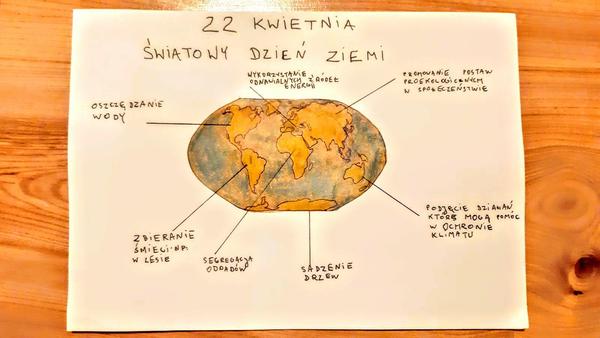 22 KWIETNIA
ŚWIATOWY DZIEŃ ZIEMI
WYKORZYSTANIE
ODNAWIALNYCH ŹRÓDEŁ
ENERGII
PROMOWANIE POSTAW
PROEKOLOGICZNYCH
W SPOŁECZEŃSTWIE
OSZCZĘDZANIE
WODY
PODJĘCIE DZIAŁAŃ
KTÓRE MOGĄ POMÓC
W OCHRONIE
KLIMATU
ZBIERANIE
ŚMIECI NP.
W LESIE
SEGREGACJA
ODPADÓW
SADZENIE
DRZEW